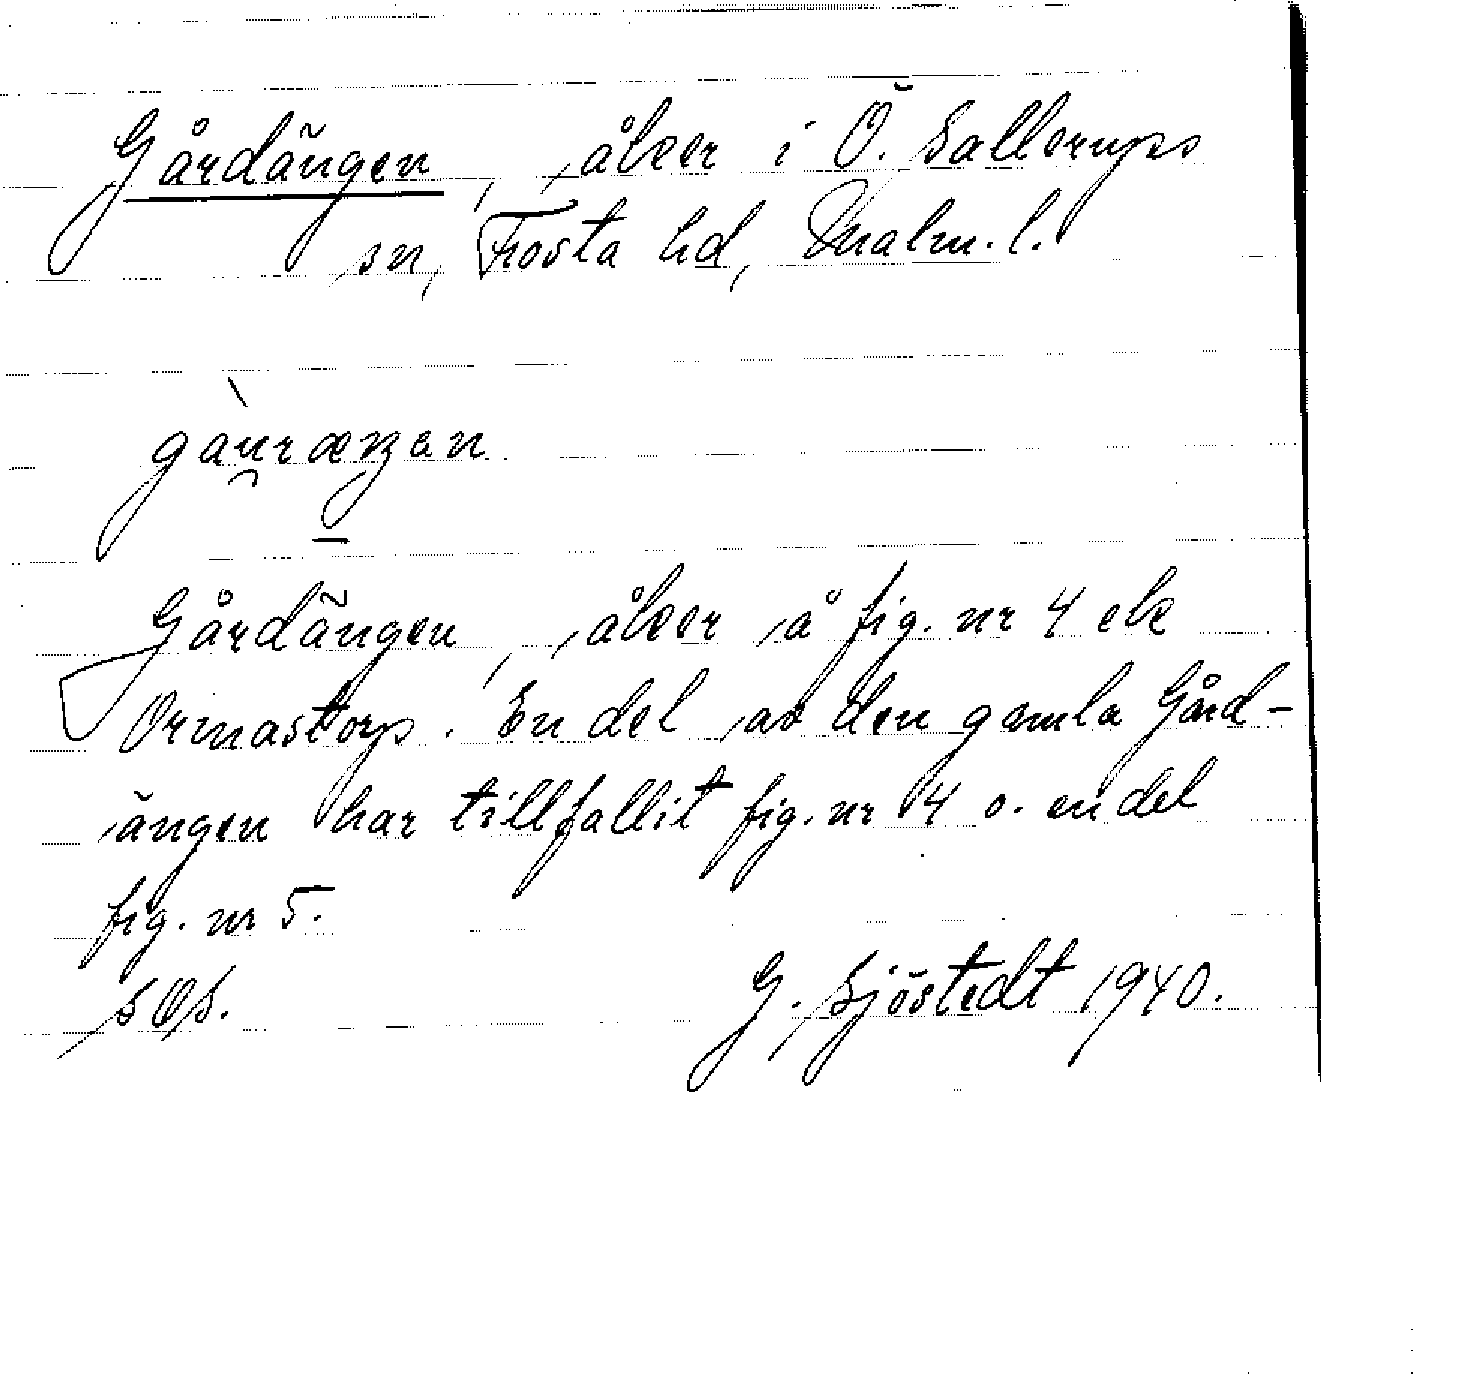 Gårdängen, åker i Ö. Sallerups
sn, Frosta hd, Malm. l.
Gårdängen, åker å fig. nr 4 ek
Ormastorp. En del av den gamla Gård-
ängen har tillfallit fig. nr 4 o. en del
fig. nr 5.
G. Sjöstedt 1940.